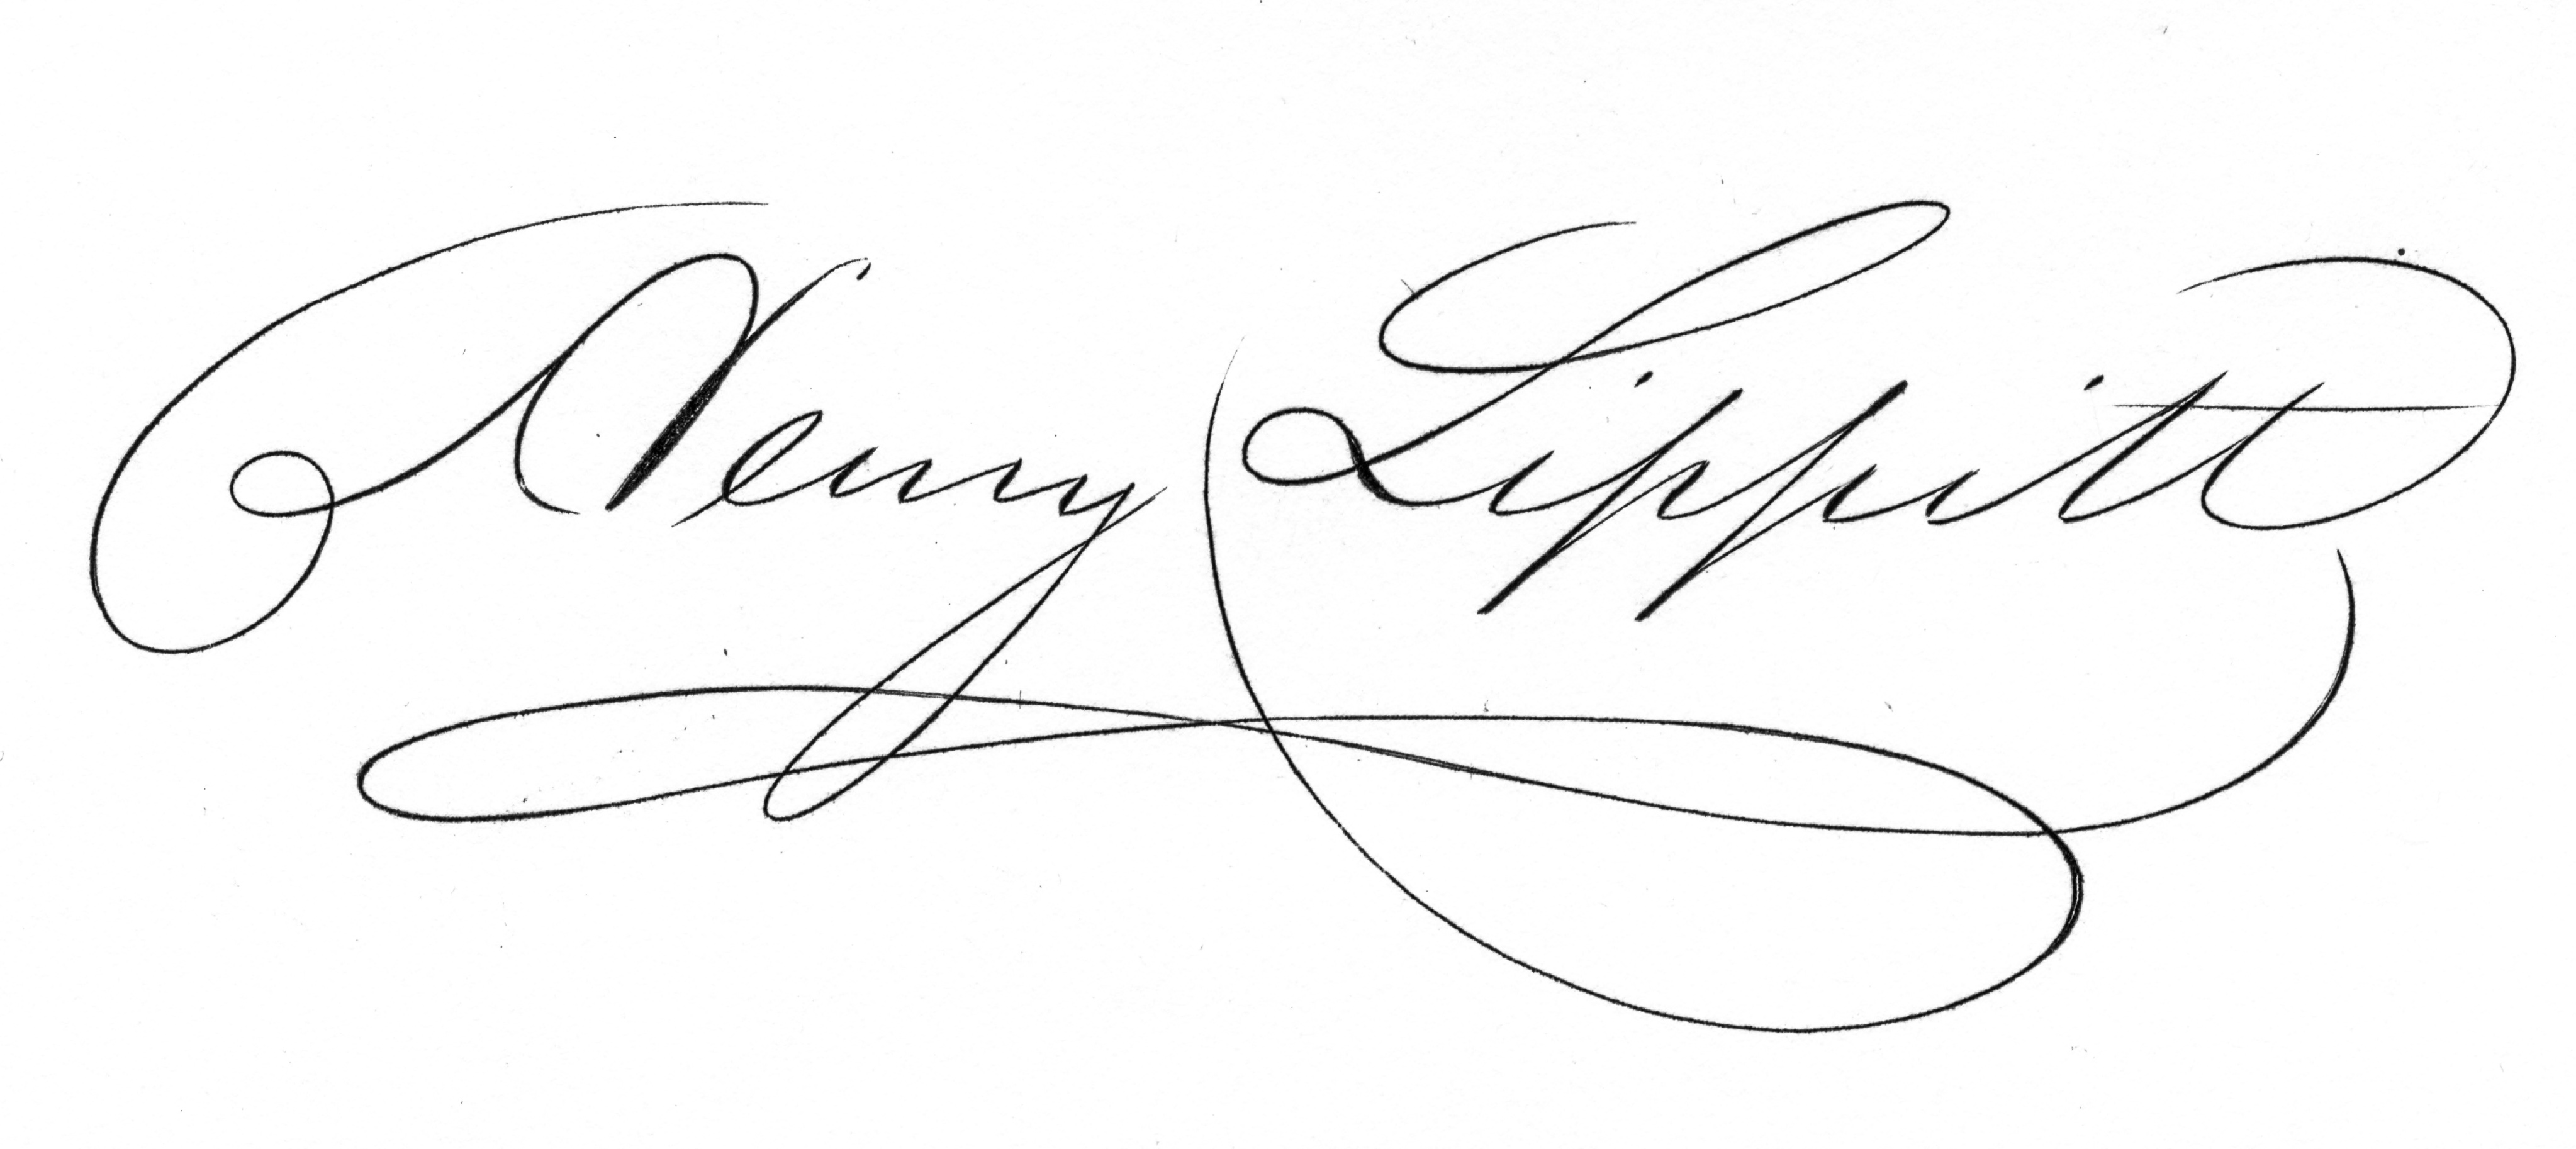 Henry Lippitt